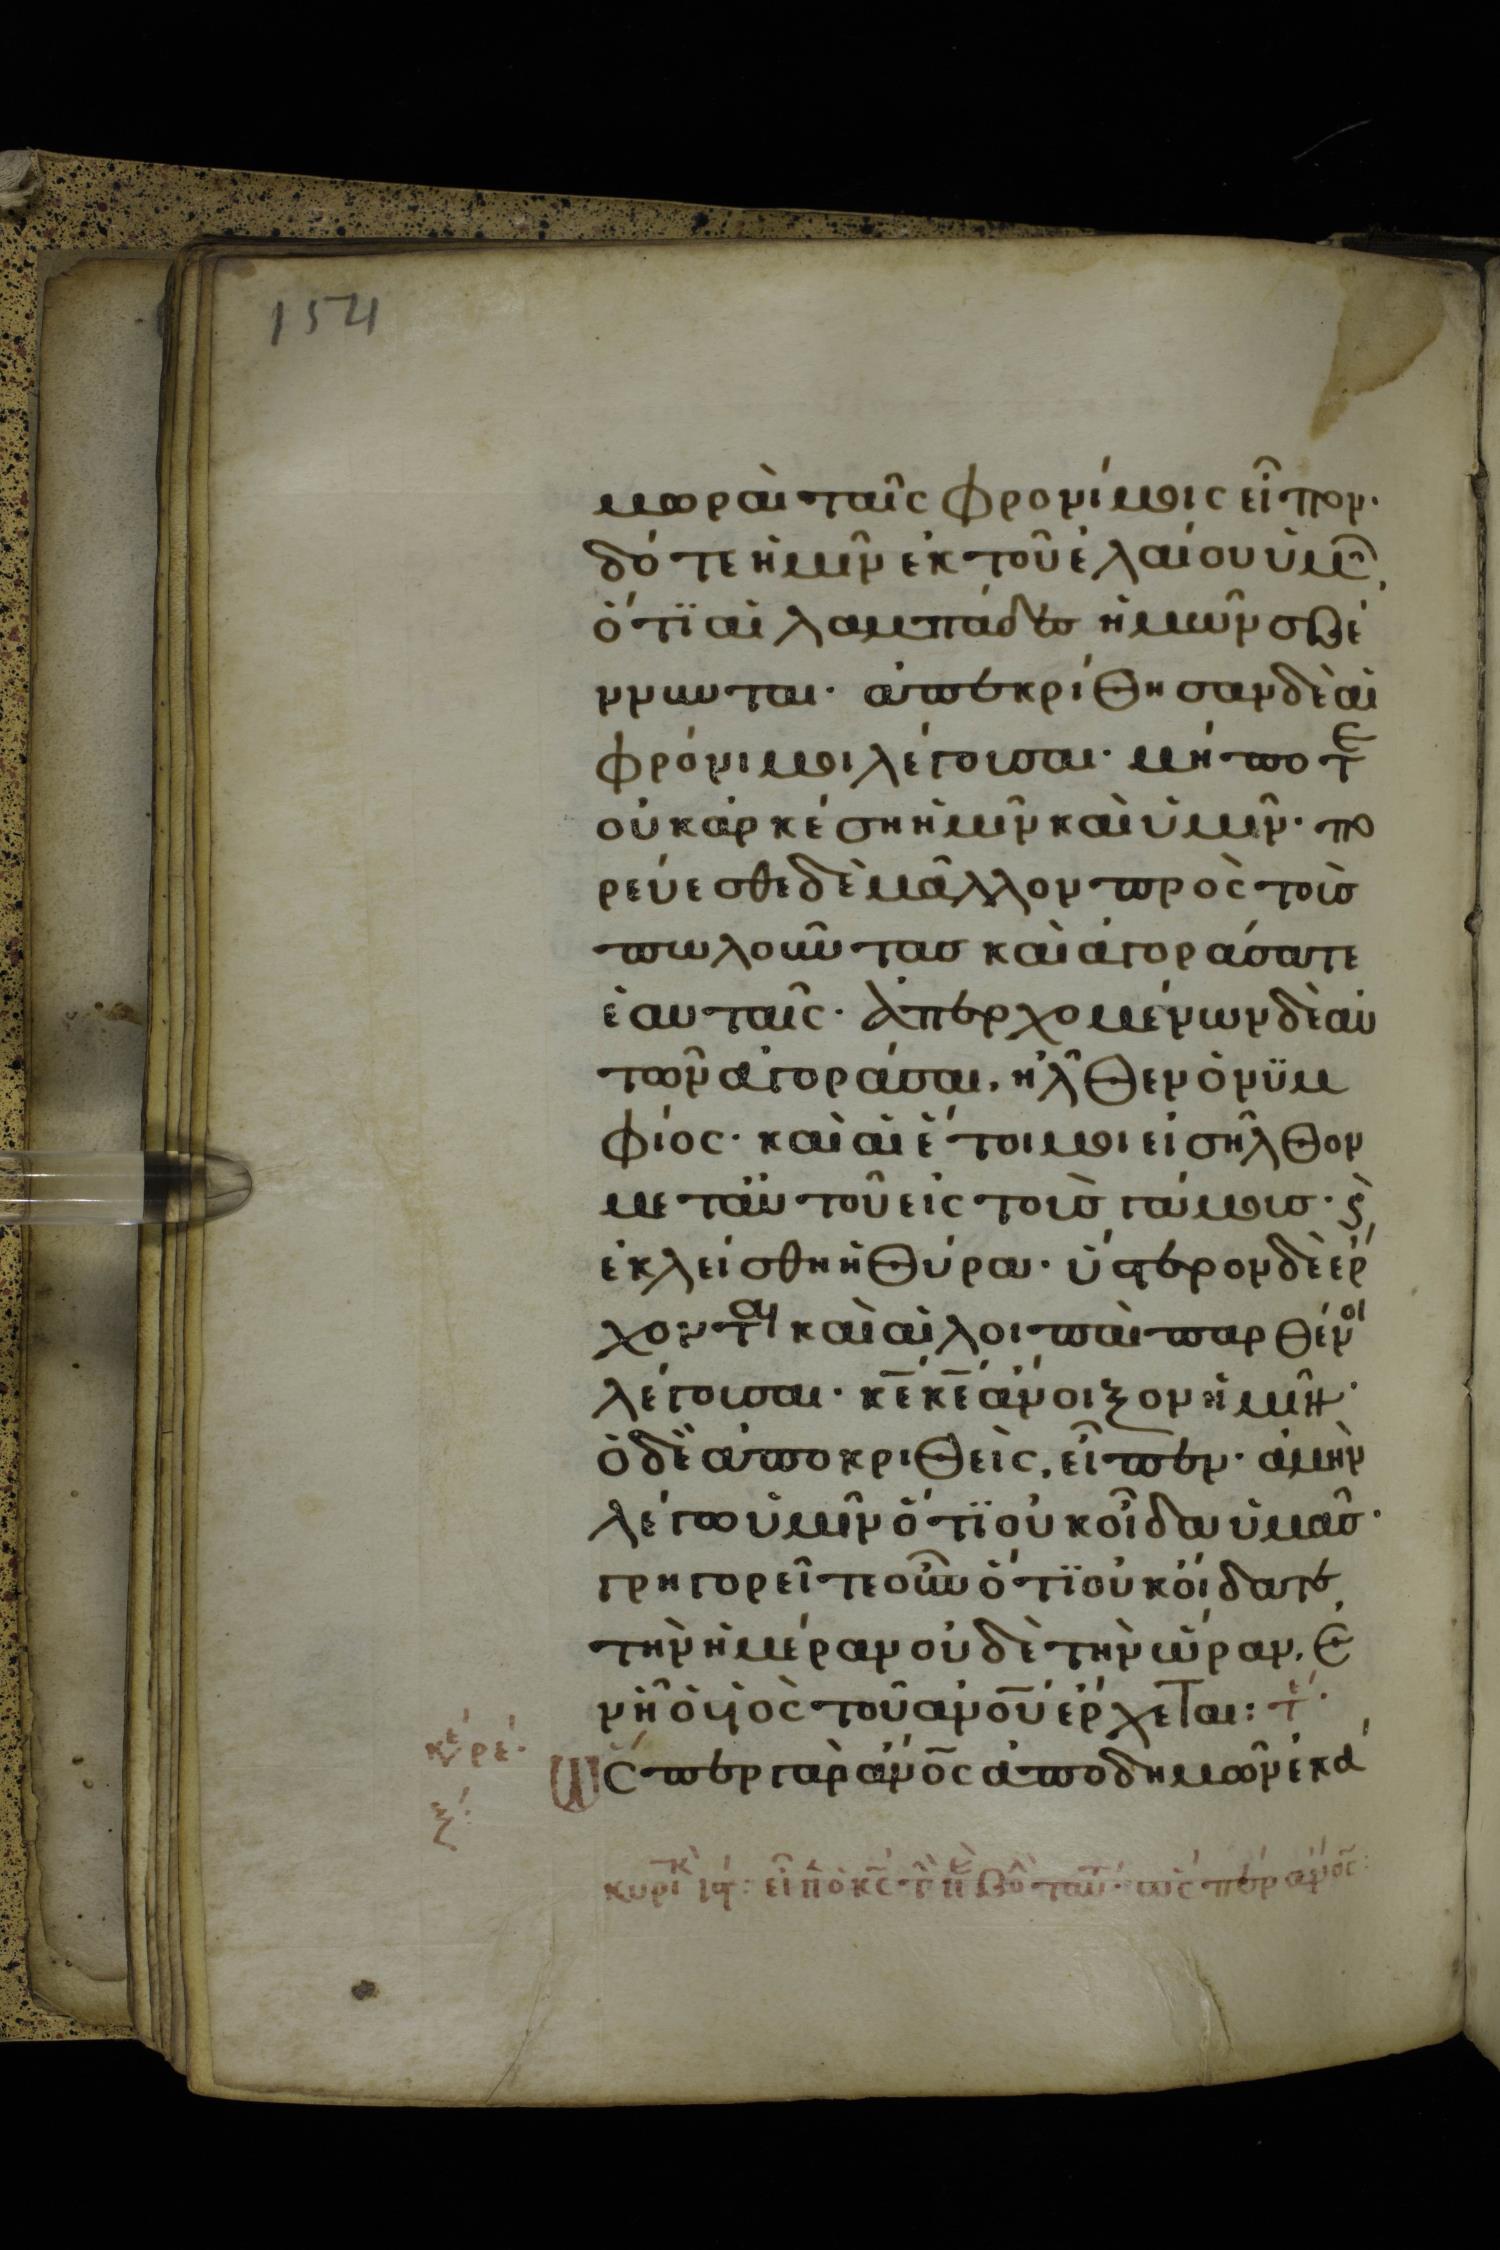 154
μωραὶ ταῖς φρονίμοις εἶπον·
δότε ἡμῖν ἐκ τοῦ ἐλαίου ὑμῶ̅,
ὅτϊ αἱ λαμπάδες ἡμῶν σβέ
ννυνται· ἀπεκρίθησαν δὲ αἱ
φρόνιμοι λέγουσαι· μήποτε
οὐκ ἀρκέση ἡμῖν καὶ ὑμῖν· πο
ρεύεσθε δὲ μᾶλλον πρὸς τοὺς
πωλοῦντας καὶ ἀγοράσατε
ἑαυταῖς· ἀπερχομένων δὲ αὐ
τῶν ἀγοράσαι, ἦλθεν ὁ νϋμ
φίος· καὶ αἱ ἕτοιμοι εἰσῆλθον
μετ' αὐτοῦ εἰς τοὺς γάμους· ϗ̀
ἐκλείσθη ἡ θύρα· ὕστερον δὲ ἔρ
χονται καὶ αἱ λοιπαὶ παρθένοι
λέγουσαι· κε̅ κε̅ ἄνοιξον ἡμῖν·
ὁ δὲ ἀποκριθεὶς, εἶπεν· ἀμὴν
λέγω ὑμῖν ὅτϊ οὐκ οἶδα ὑμᾶς·
γρηγορεῖτε οὖν ὅτϊ οὐκ οἴδατε
τὴν ἡμέραν οὐδὲ τὴν ὥραν, ἐ
ν ἧ ὁ υἱὸς τοῦ ἀνο̅υ ἔρχεται: τέ·
κε ρέ·
Ὥσπερ γὰρ ἀνο̅ς ἀποδημῶν ἐκά
ξ·
κυρι κ ιϛ: εἶπ ὁ κς̅ τ π βο ταύ· ὥσπερ ἀνο̅ς: